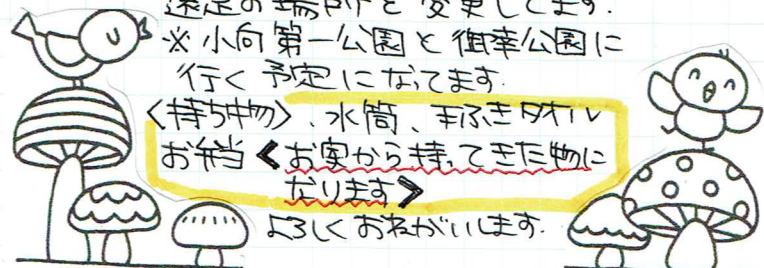 遠足の場所を変更してます.
※小向第一公園と御幸公園に
行く予定になってます.
〈持ち物〉、水筒、手ふきタオル
お弁当《お家から持ってきた物に
なります》
よろしくおねがいします.